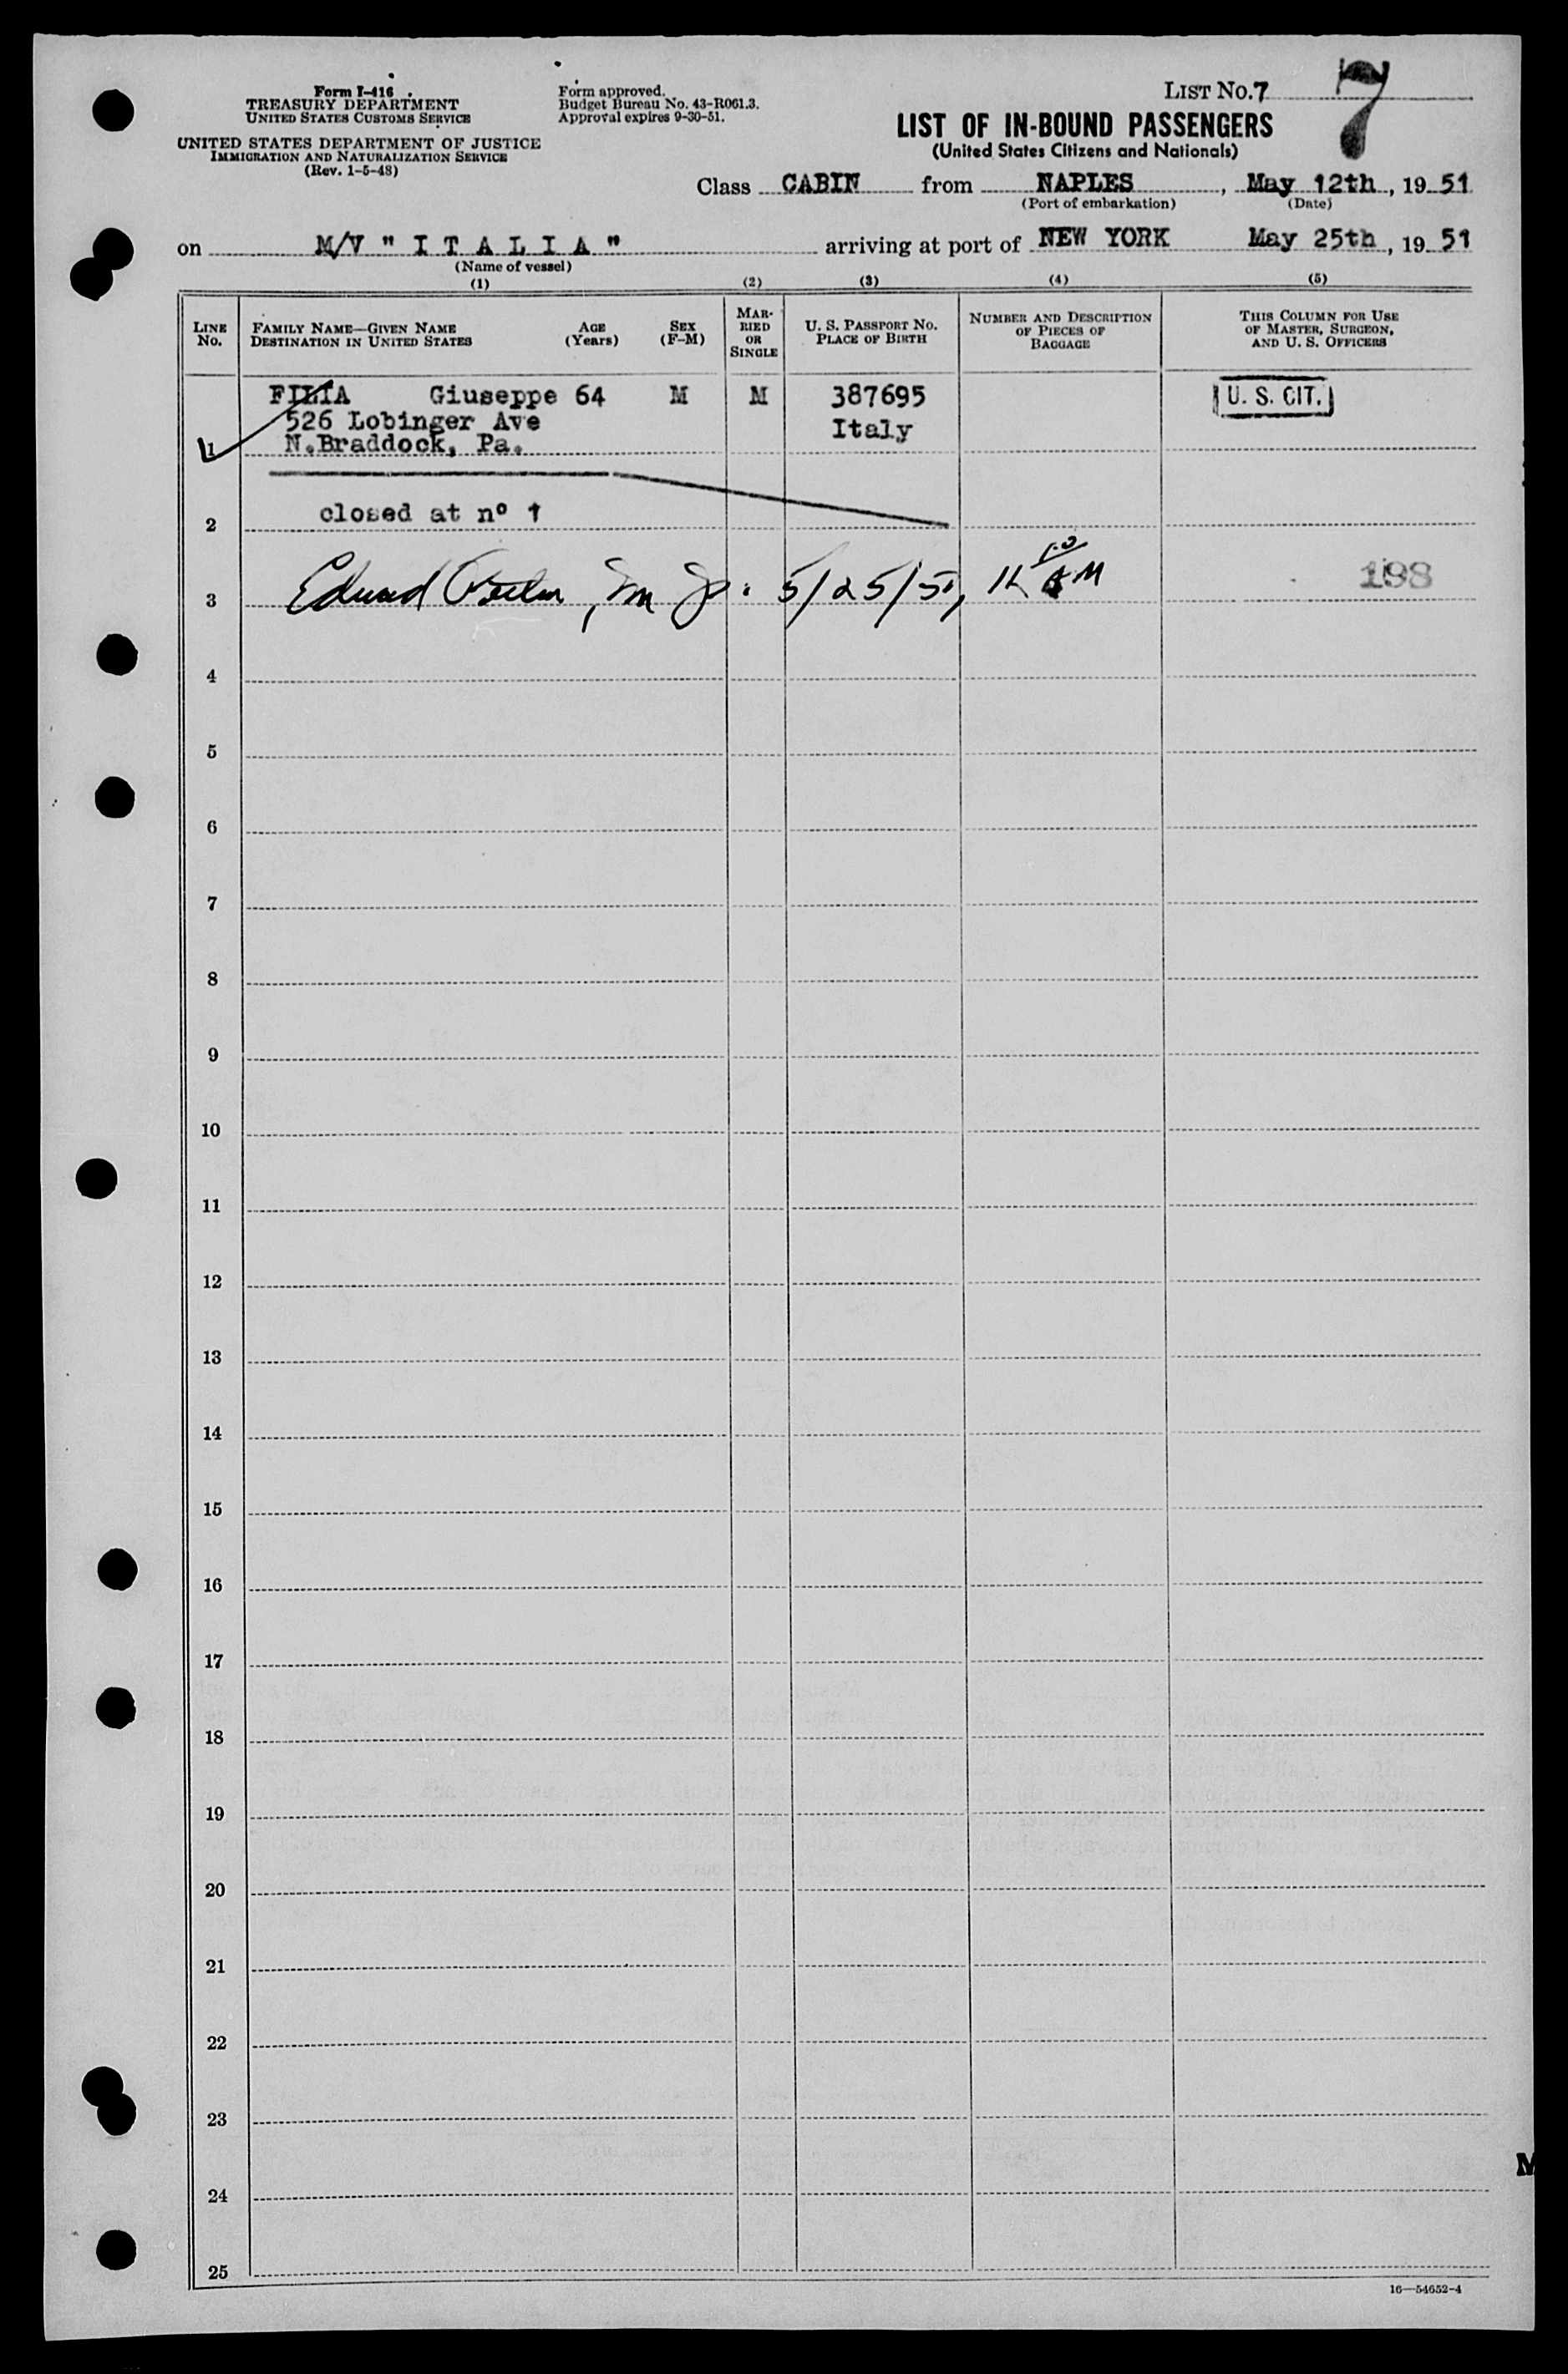 Form I-416
TREASURY DEPARTMENT
UNITED STATES CUSTOMS SERVICE
UNITED STATES DEPARTMENT OF JUSTICE
IMMIGRATION AND NATURALIZATION SERVICE
(Rev. 1-5-48)
Form approved.
Budget Bureau No. 43-R061.3.
Approval expires 9-30-51.
LIST No. 7
7
LIST OF IN-BOUND PASSENGERS
(United States Citizens and Nationals)
Class CABIN from NAPLES, May 12th, 19 51
(Port of embarkation) (Date)
on M/V " I T A L I A " arriving at port of NEW YORK May 25th, 19 51
(Name of vessel)
(1) (2) (3) (4) (5)
LINE No.
FAMILY NAME—GIVEN NAME
DESTINATION IN UNITED STATES
AGE (Years)
SEX (F-M)
MARRIED OR SINGLE
U. S. PASSPORT No.
PLACE OF BIRTH
NUMBER AND DESCRIPTION OF PIECES OF BAGGAGE
THIS COLUMN FOR USE OF MASTER, SURGEON, AND U. S. OFFICERS
FILIA Giuseppe 64 M M 387695 U. S. CIT.
526 Lobinger Ave Italy
1 N.Braddock, Pa.
2 closed at nº 1
3 5/25/51, AM 198
4
5
6
7
8
9
10
11
12
13
14
15
16
17
18
19
20
21
22
23
M
24
25
16—54652-4